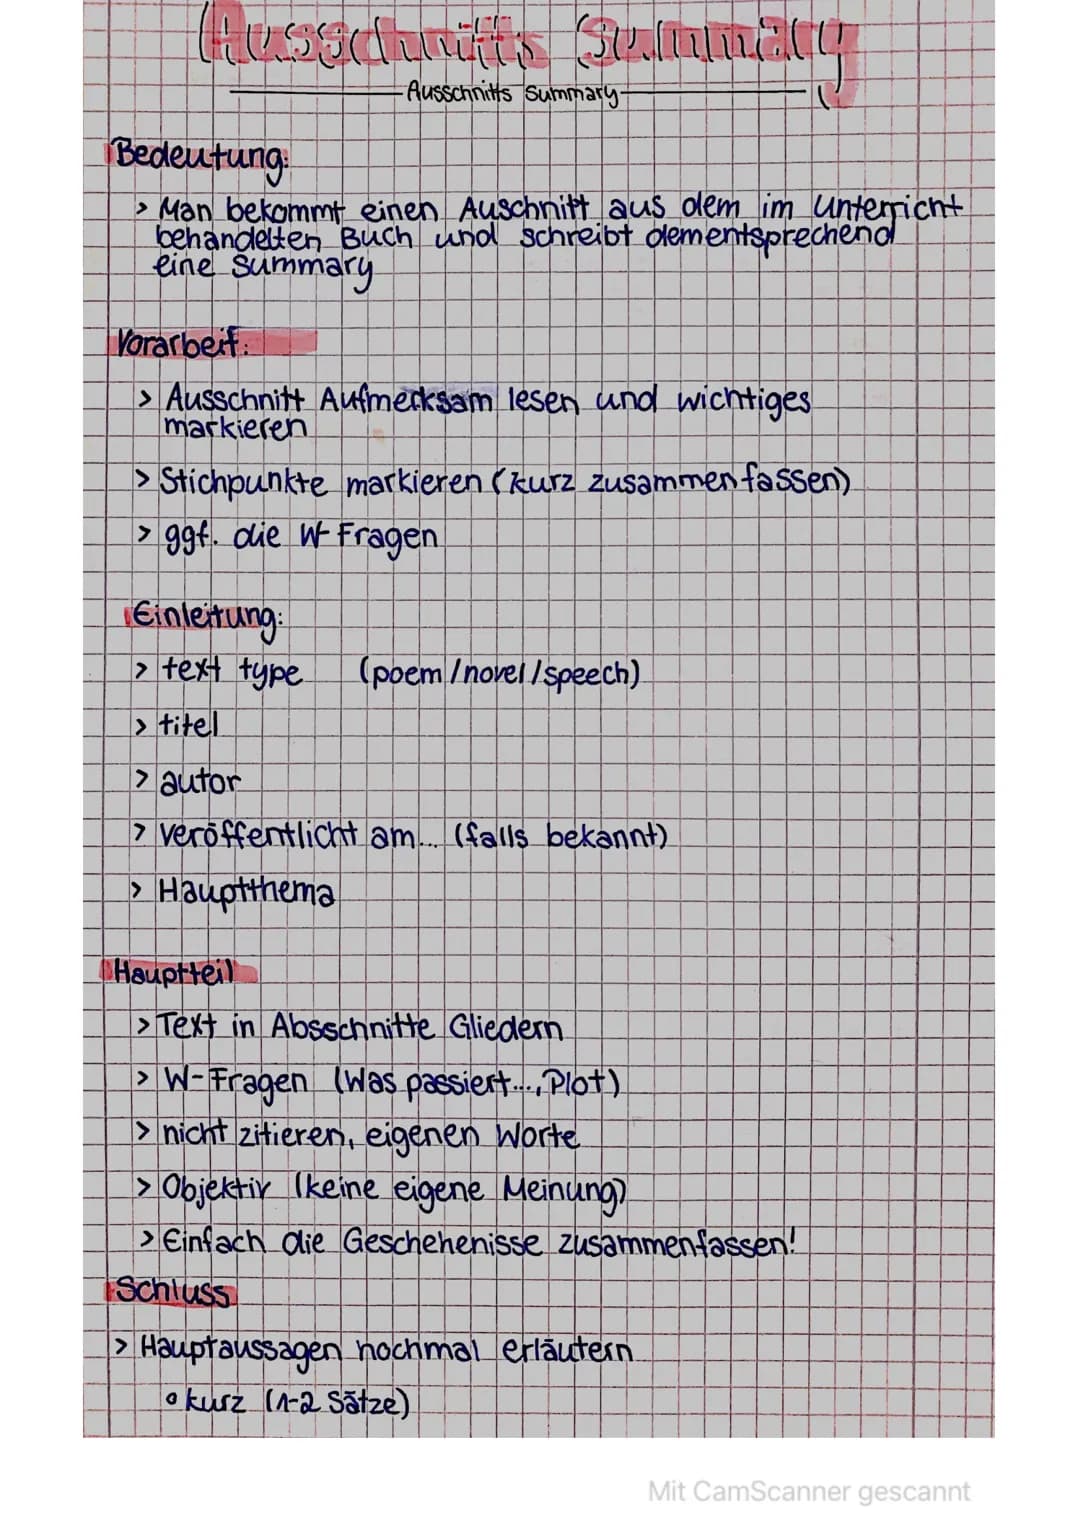 Ausschnitts Summary
Ausschnitts Summary
Bedeutung:
> Man bekommt einen Auschnitt aus dem im Unterricht
behandelten Buch und schreibt dementsprechend
eine Summary
Vorarbeit:
> Ausschnitt Aufmerksam lesen und wichtiges
markieren
> Stichpunkte markieren (kurz zusammenfassen)
> ggf. die W-Fragen
Einleitung:
> text type (poem/novel/speech)
> titel
> autor
> veröffentlicht am... (falls bekannt)
> Hauptthema
Hauptteil
> Text in Absschnitte Gliedern
> W-Fragen (Was passiert..., Plot)
> nicht zitieren, eigenen Worte
> Objektiv (keine eigene Meinung)
> Einfach die Geschehenisse zusammenfassen!
Schluss
> Hauptaussagen nochmal erläutern
o kurz (1-2 Sätze)
Mit CamScanner gescannt